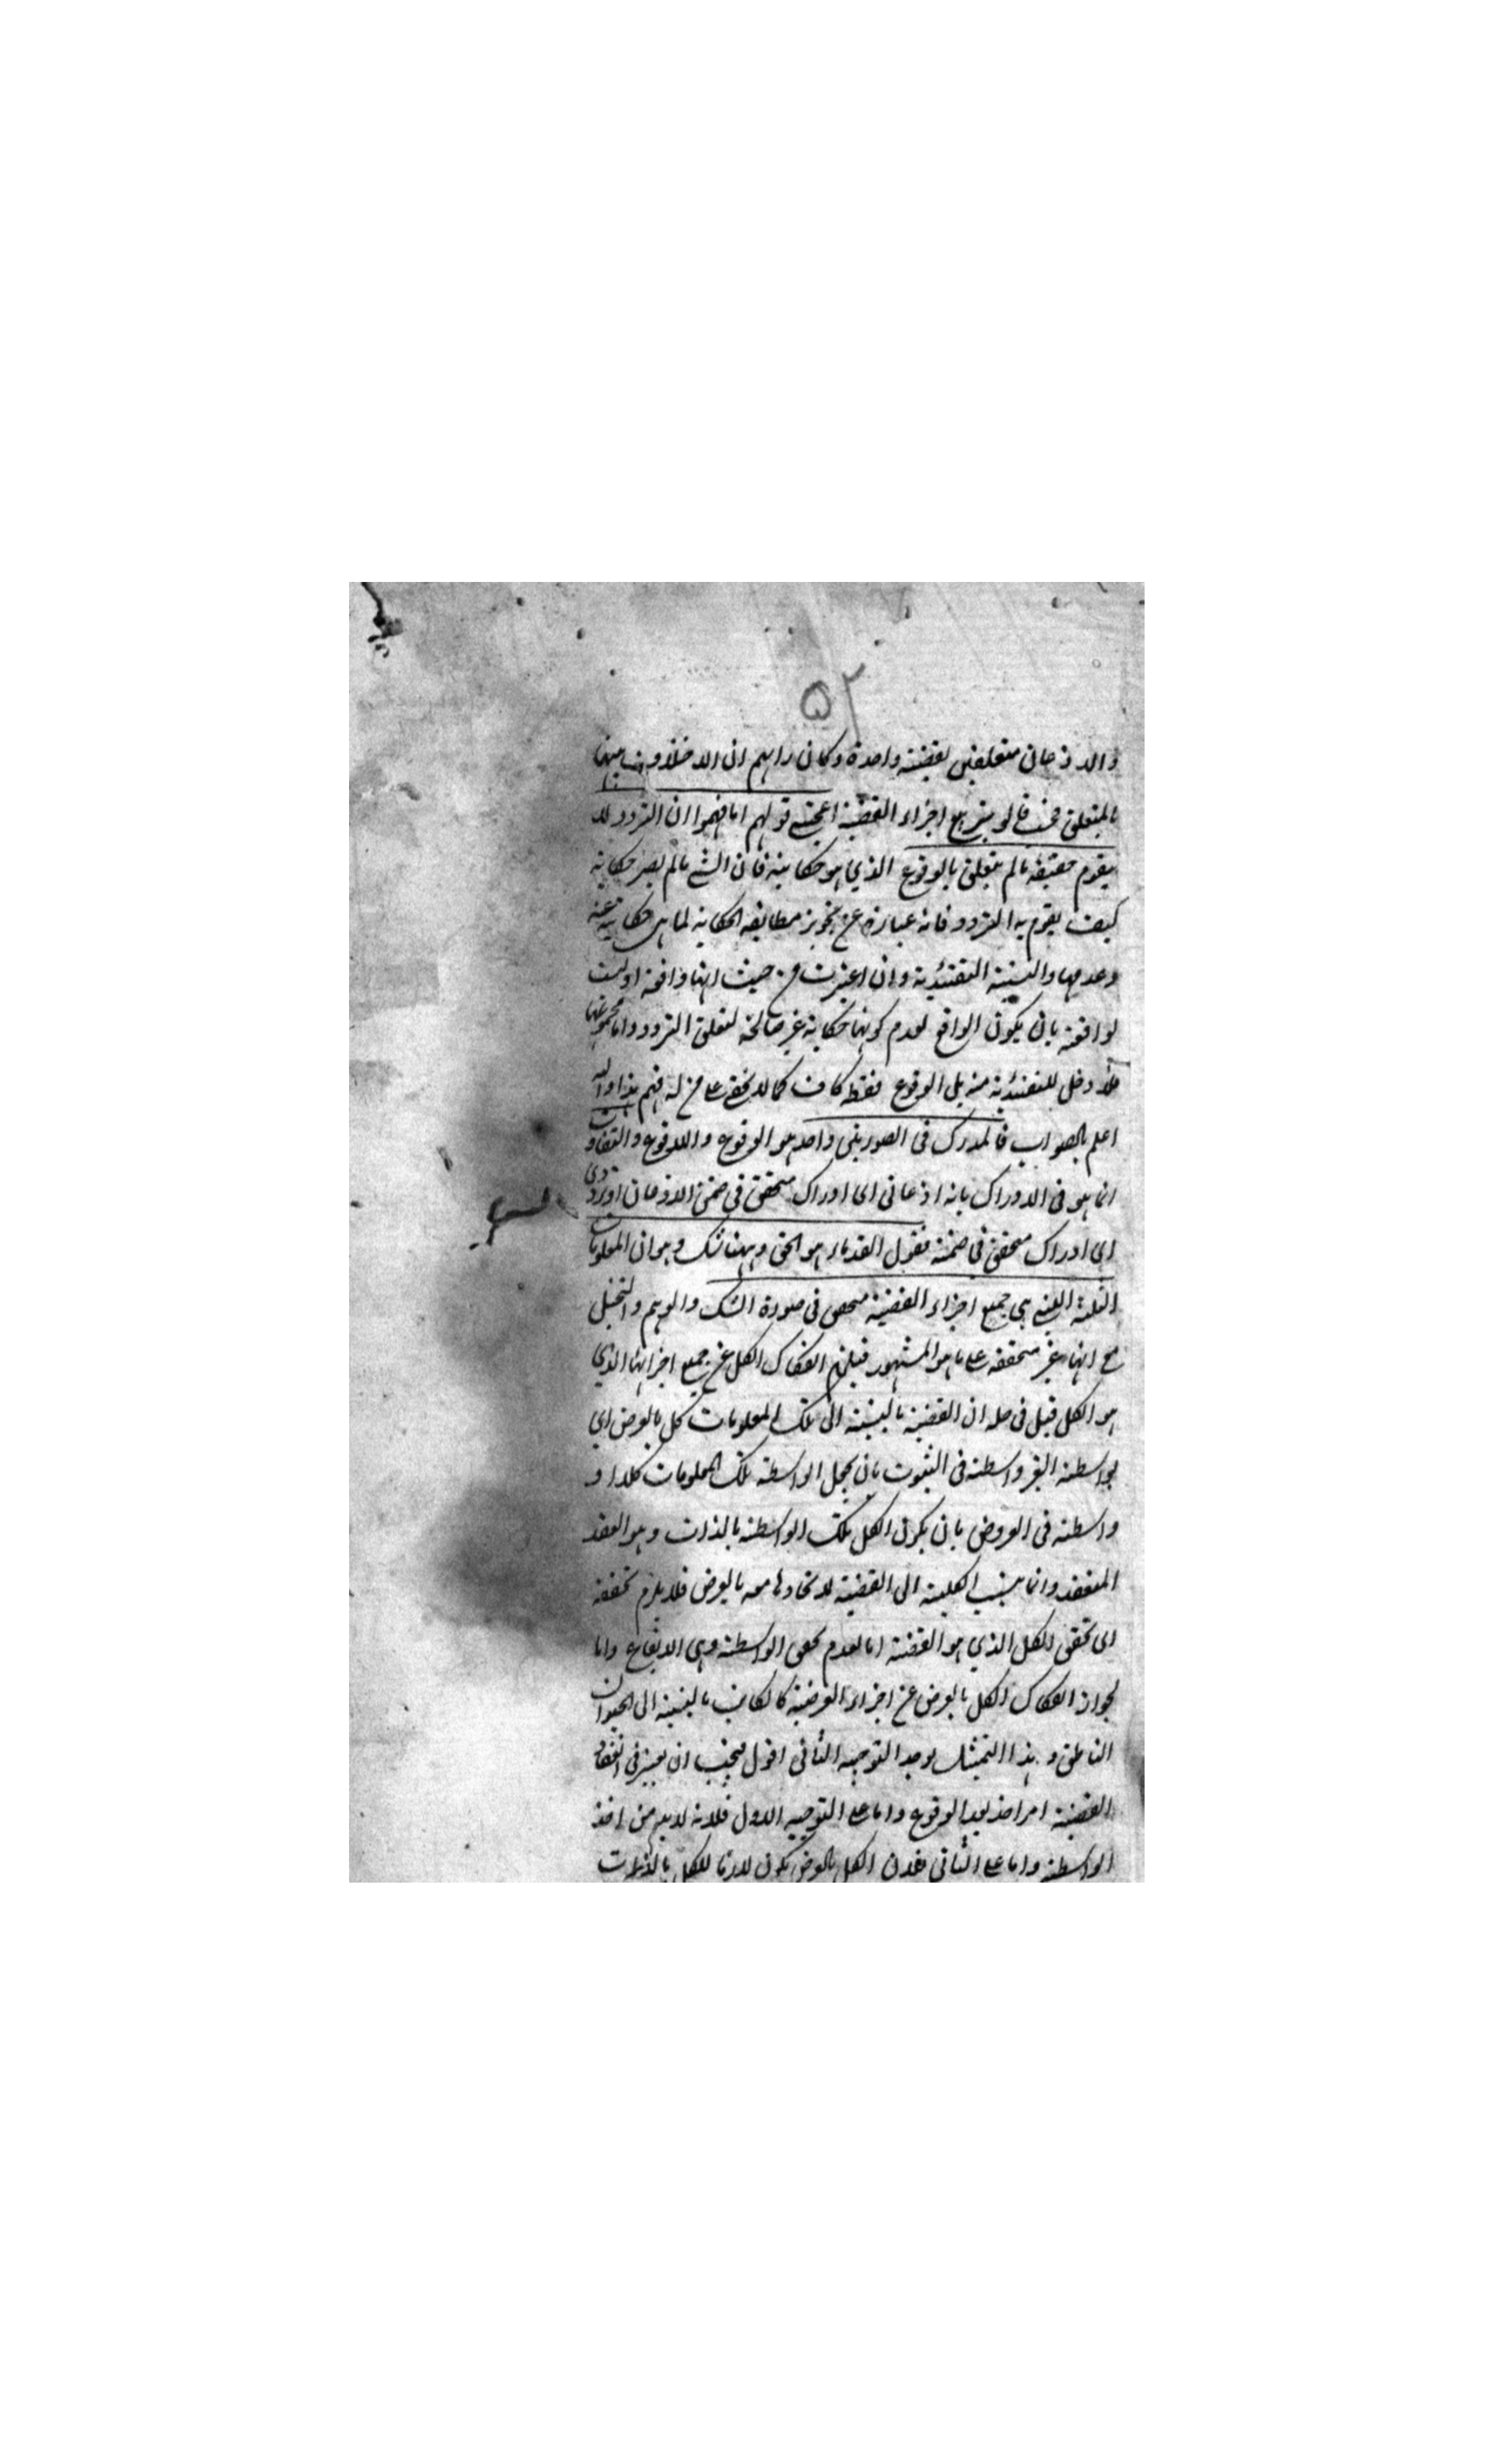 ٥٢
والاذعان متعلقين بقضية واحدة وكان رايهم ان الاختلاف بينهما
بالمتعلق فحينئذ قالوا بتربيع اجزاء القضية اعجبني قولهم اما فهموا ان التردد لا
يقوم حقيقة ما لم يتعلق بالوقوع الذي هو حكاية فان الشي ما لم يصر حكاية
كيف يقوم به التردد فانه عبارة عن تجويز مطابقة الحكاية لما هي حكاية عنه
وعدمها والنسبة التقييدية وان اعتبرت من حيث انها واقعة او ليست
بواقعة بان يكون الواقع لعدم كونها حكاية غير صالحة لتعلق التردد واما مجموعهما
فلا دخل للتقييدية منه بل الوقوع فقط كاف كما لا يخفى على من له فهم هذا والله
اعلم بالصواب فالمدرك في الصورتين واحد هو الوقوع واللاوقوع والتفاوت
انما هو في الادراك بانه اذعاني اى ادراك متحقق في ضمن الاذعان او ترددي
اى ادراك متحقق في ضمنه فقول القدماء هو الحق وههنا شك وهو ان المعلومات
الثلثة التي هي جميع اجزاء القضية متحقق في صورة الشك والوهم والتخييل
مع انها غير متحققة على ما هو المشهور فيلزم انفكاك الكل عن جميع اجزائها الذي
هو الكل قيل في حله ان القضية بالنسبة الى تلك المعلومات كل بالعرض اي
بواسطة الغير واسطة في الثبوت بان يجعل الواسطة تلك المعلومات كلا او
واسطة في العروض بان يكون الكل تلك الواسطة بالذات وهو العقد
المنعقد وانما ينسب الكلية الى القضية لاتحادها معه بالعرض فلا يلزم تحققه
اى تحقق الكل الذي هو القضية اما لعدم تحقق الواسطة وهى الايقاع واما
لجواز انفكاك الكل بالعرض عن اجزاء العرضية كالكاتب بالنسبة الى الحيوان
الناطق و هذا التمثيل يوجد التوجيه الثاني اقول فيجب ان يعتبر في انعقاد
القضية امر اخذ بعد الوقوع واما على التوجيه الاول فلانه لا بد من اخذ
الواسطة واما على الثاني فلان الكل بالعرض يكون لازما للكل بالذات